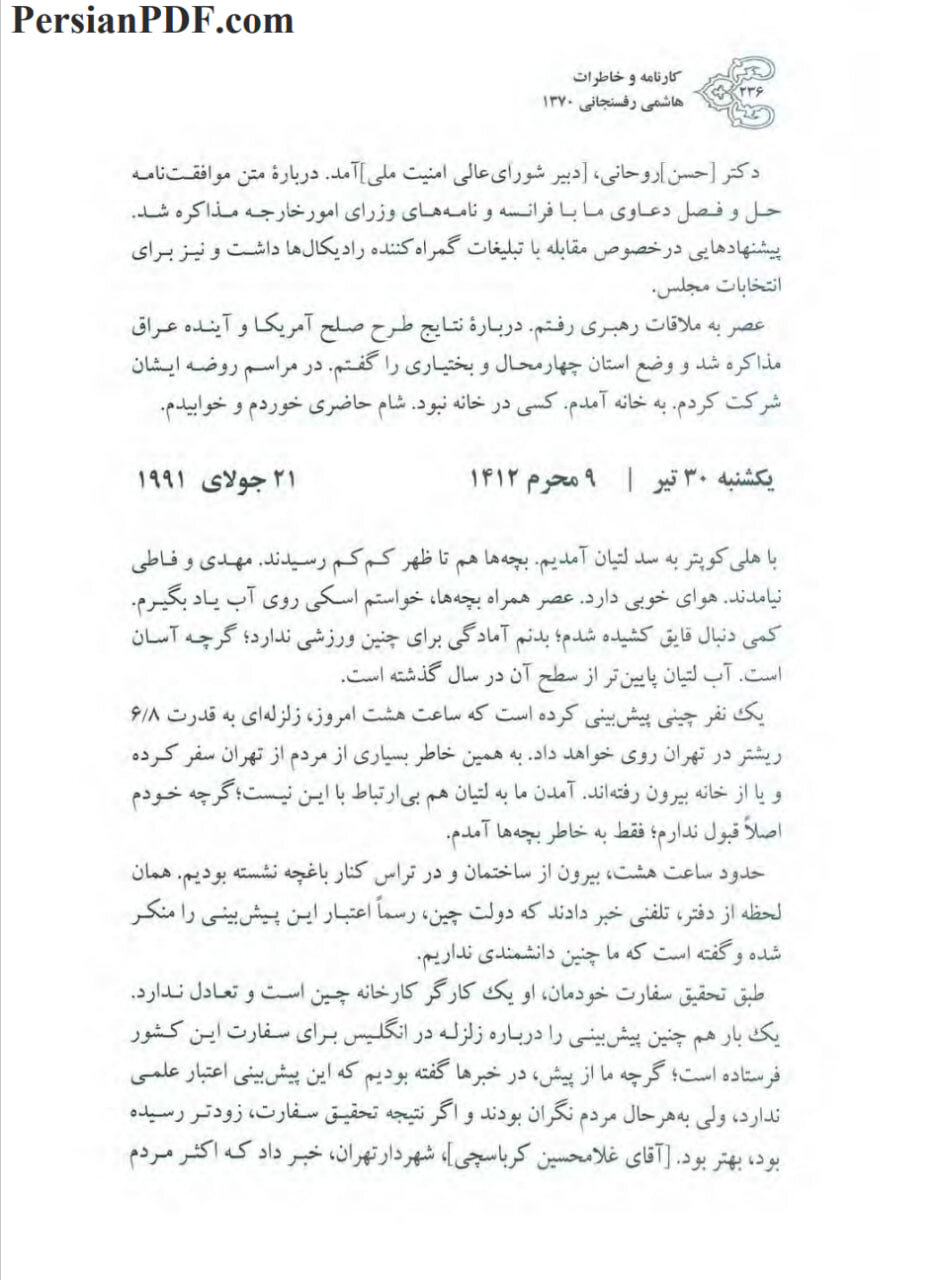 PersianPDF.com
کارنامه و خاطرات
۲۳۶
هاشمی رفسنجانی ۱۳۷۰
دکتر [حسن]روحانی، [دبیر شورای‌عالی امنیت ملی]آمد. دربارهٔ متن موافقت‌نامه
حل و فصل دعاوی ما با فرانسه و نامه‌های وزرای امورخارجه مذاکره شد.
پیشنهادهایی درخصوص مقابله با تبلیغات گمراه‌کننده رادیکال‌ها داشت و نیز برای
انتخابات مجلس.
عصر به ملاقات رهبری رفتم. دربارهٔ نتایج طرح صلح آمریکا و آینده عراق
مذاکره شد و وضع استان چهارمحال و بختیاری را گفتم. در مراسم روضه ایشان
شرکت کردم. به خانه آمدم. کسی در خانه نبود. شام حاضری خوردم و خوابیدم.
یکشنبه ۳۰ تیر | ۹ محرم ۱۴۱۲ ۲۱ جولای ۱۹۹۱
با هلی‌کوپتر به سد لتیان آمدیم. بچه‌ها هم تا ظهر کم‌کم رسیدند. مهدی و فاطی
نیامدند. هوای خوبی دارد. عصر همراه بچه‌ها، خواستم اسکی روی آب یاد بگیرم.
کمی دنبال قایق کشیده شدم؛ بدنم آمادگی برای چنین ورزشی ندارد؛ گرچه آسان
است. آب لتیان پایین‌تر از سطح آن در سال گذشته است.
یک نفر چینی پیش‌بینی کرده است که ساعت هشت امروز، زلزله‌ای به قدرت ۶/۸
ریشتر در تهران روی خواهد داد. به همین خاطر بسیاری از مردم از تهران سفر کرده
و یا از خانه بیرون رفته‌اند. آمدن ما به لتیان هم بی‌ارتباط با این نیست؛گرچه خودم
اصلاً قبول ندارم؛ فقط به خاطر بچه‌ها آمدم.
حدود ساعت هشت، بیرون از ساختمان و در تراس کنار باغچه نشسته بودیم. همان
لحظه از دفتر، تلفنی خبر دادند که دولت چین، رسماً اعتبار این پیش‌بینی را منکر
شده و گفته است که ما چنین دانشمندی نداریم.
طبق تحقیق سفارت خودمان، او یک کارگر کارخانه چین است و تعادل ندارد.
یک بار هم چنین پیش‌بینی را درباره زلزله در انگلیس برای سفارت این کشور
فرستاده است؛ گرچه ما از پیش، در خبرها گفته بودیم که این پیش‌بینی اعتبار علمی
ندارد، ولی به‌هرحال مردم نگران بودند و اگر نتیجه تحقیق سفارت، زودتر رسیده
بود، بهتر بود. [آقای غلامحسین کرباسچی]، شهردارتهران، خبر داد که اکثر مردم